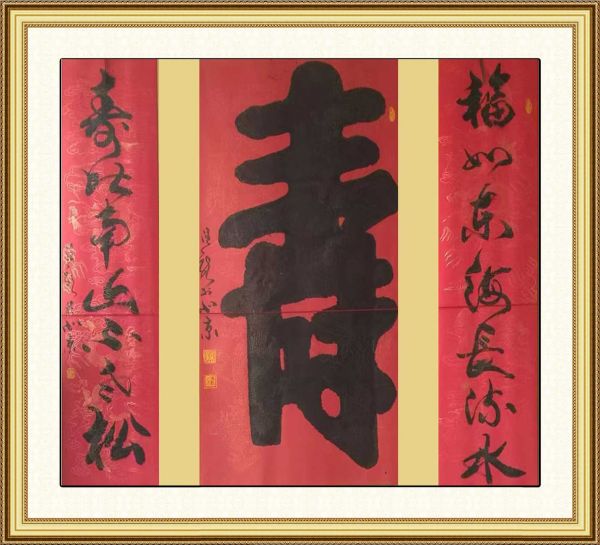 福如东海长流水
寿
寿比南山不老松